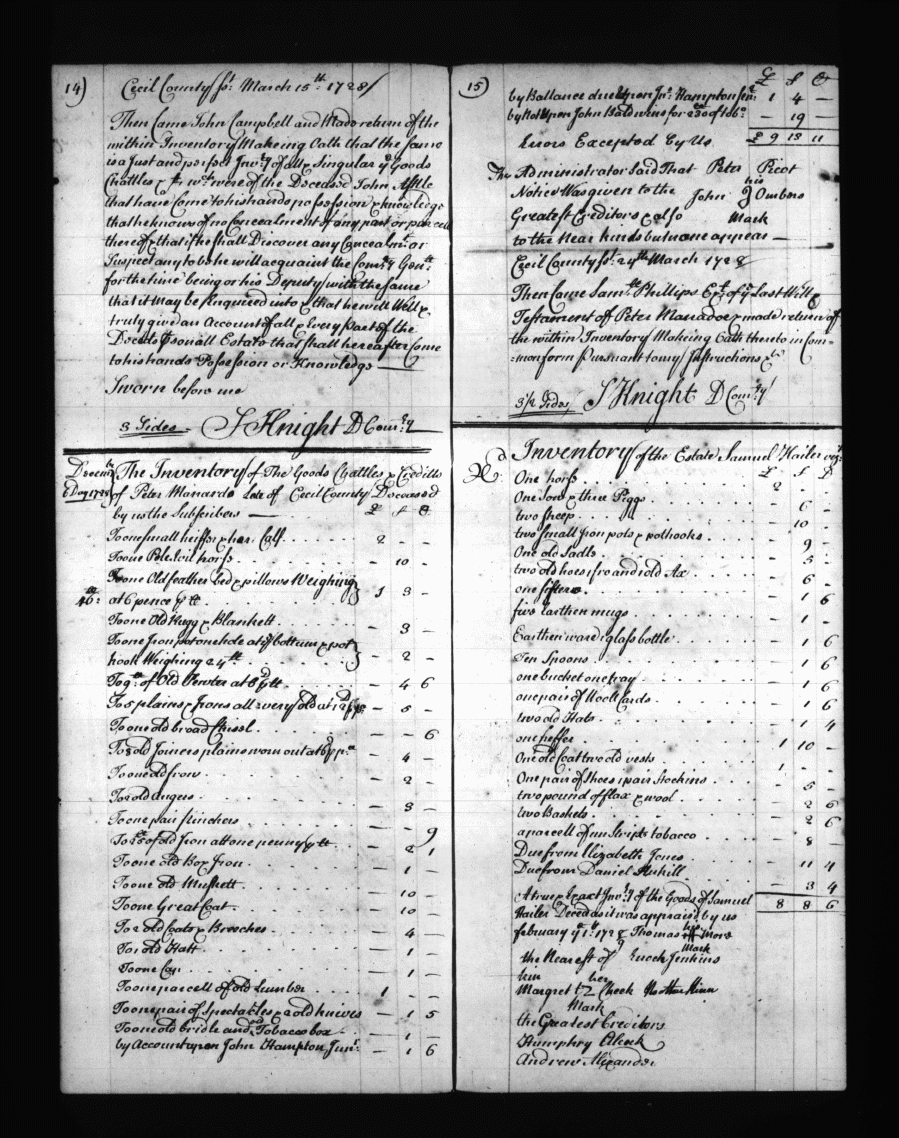 14)
Cecil County ss: March 15th 1728/
Then Came John Campbell and Made return of the
within Inventory Makeing Oath that the same
is a Just and perfect Invry of all & Singular ye Goods
Chattles & wch were of the Deceased John
that have Come to his hands possession & knowledge
that he knows of no Concealment of any part or parcell
thereof & that if he shall Discover any Concealmt or
Suspect any to be he will acquaint the Comry Genll
for the time being or his Deputy with the same
that it may be Enquired into & that he will Well &
truly give an Account of all & Every Part of the
Deceds Psonall Estate that shall hereafter Come
to his hands Possession or Knowledge
Sworn before me
3 Sides - S Knight D Comry
Decemb
6 Day 1728
The Inventory of The Goods Chattles & Creditts
of Peter Manardo Late of Cecil County Deceased
by us the Subscribers £ s d
To one small heiffer & her Calf 2 - -
To one horss - 10 -
To one Old feather bed & pillows Weighing
46: at 6 pence 1 3 -
To one Old Rugg & Blankett - 3 -
To one Iron pot one hole at ye bottum & pot
hook Weighing 24 tt - 2 -
To 9 tt of Old Pewter at 6 d tt - 4 6
To 5 plains & Irons all very old at - 5 -
To one old broad Chissl - - 6
To 8 old Joiners plains worn out at 6 d p - 4 -
To one old frow - 2 -
To 2 old augers - 3 -
To one pair pinchers - - 9
To 25 tt of old Iron att one penny tt - 2 1
To one old Box Iron - 1 -
To one old Muskett - 10 -
To one Great Coat - 10 -
To 2 old Coats & Breches - 4 -
To 1 old Hatt - 1 -
To one Cap - 1 -
To one parcell of old lumber 1 - -
To one pair of Spectakles & 2 old knives - 1 5
To one old bridle and old Tobacco box - 1 -
by Account upon John Hampton Junr - 1 6
15)
£ s d
by Ballance due upon Jno Hampton Senr 1 4 -
by Note upon John Baldwens for 230 of tobo - 19 -
Errors Excepted By Us £ 9 15 11
The Administrator Said That Peter Picot
Notice Was given to the his
John Ombors
Greatest Creditors & also Mark
to the Near kinds but none appear
Cecil County ss: 24th March 1728
Then Came Samll Phillips Exr of ye Last Will &
Testament of Peter Manadoe & made return of
the within Inventory Making Oath thereto in Com-
=mon form Pursuant to my Instructions
3 1/2 Sides S Knight D Comry
Inventory of the Estate Samuel Hailes
£ s d
One horss 2 - -
One Sow & three Piggs - 6 -
two sheep - 10 -
two small Iron pots & pothooks - 9 -
One old Sadle - 5 -
two old hoes 1 fro and 1 old Ax - 6 -
one sifter - 1 6
five Earthen mugs - 1 -
Earthen ware 1 glass bottle - 1 6
Ten Spoons - 1 6
one bucket one tray - 1 6
one pair of Wooll Cards - 1 6
two old Hats - 1 4
one heffer 1 10 -
One old Coat two old vests 1 - -
One pair of Shoes 1 pair Stockins - 5 -
two pound of flax & wool - 2 6
two Baskets - 2 6
a parcell of tobacco - 8 -
Due from Elizabeth Jones - 11 4
Due from Daniel - 3 4
A true & Exact Invry of the Goods of Samuel 8 8 6
Hailes Deced as it was apprais'd by us
february ye 1st 1728 Thomas his More
Mark
the Nearest of Enoch Jenkins
kin her
Margret Cheek
Mark
the Greatest Creditors
Humphry
Andrew Alexander